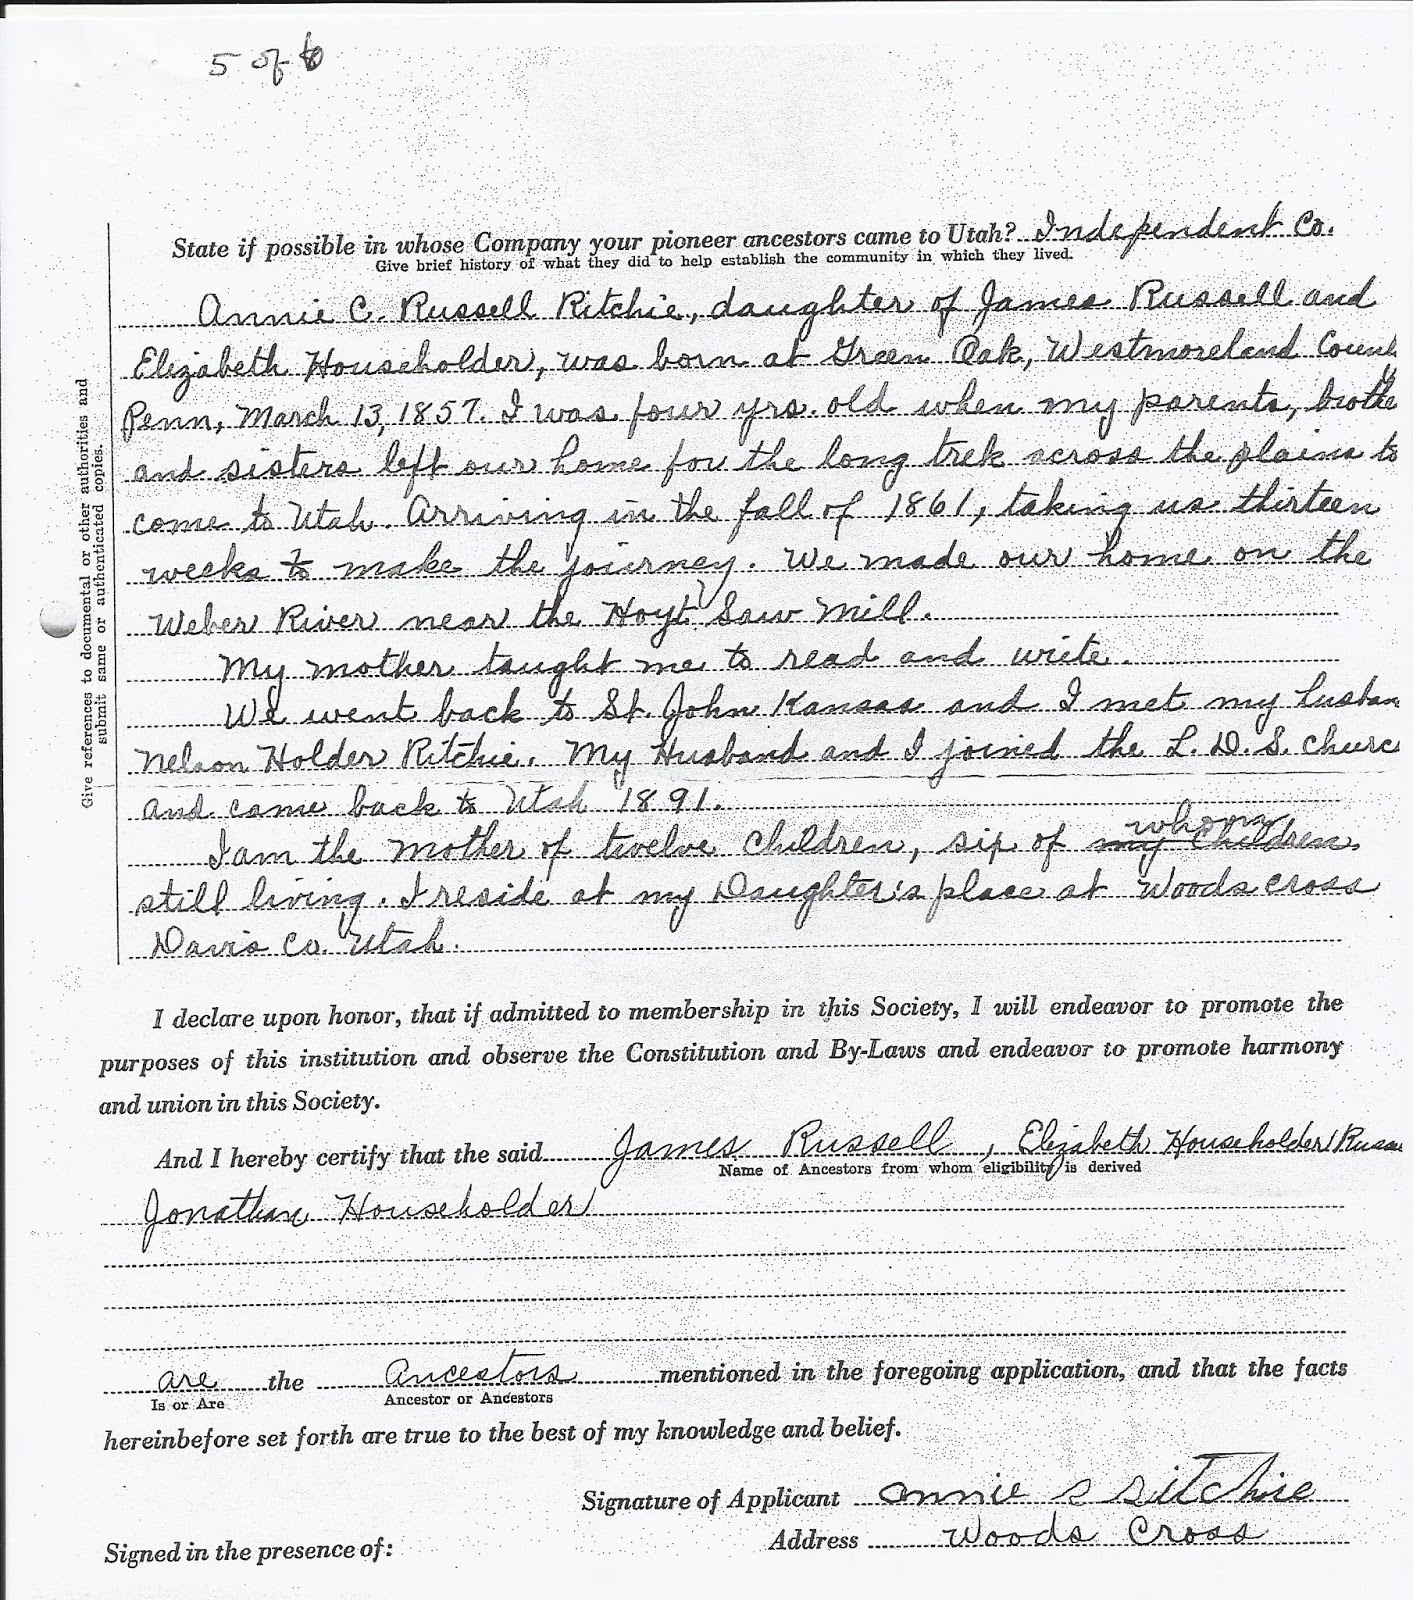 5 of 6
State if possible in whose Company your pioneer ancestors came to Utah? Independent Co.
Give brief history of what they did to help establish the community in which they lived.
Give references to documental or other authorities and
submit same or authenticated copies.
Annie C. Russell Ritchie, daughter of James Russell and
Elizabeth Householder, was born at Green Oak, Westmoreland County
Penn, March 13, 1857. I was four yrs. old when my parents, brothe
and sisters left our home for the long trek across the plains to
come to Utah. Arriving in the fall of 1861, taking us thirteen
weeks to make the journey. We made our home on the
Weber River near the Hoyt Saw Mill.
My mother taught me to read and write.
We went back to St. John Kansas and I met my husban
Nelson Holder Ritchie. My Husband and I joined the L. D. S. Churc
and came back to Utah 1891.
I am the Mother of twelve Children, six of my Children whom
still living. I reside at my Daughter's place at Woods Cross
Davis Co. Utah.
I declare upon honor, that if admitted to membership in this Society, I will endeavor to promote the
purposes of this institution and observe the Constitution and By-Laws and endeavor to promote harmony
and union in this Society.
And I hereby certify that the said James Russell, Elizabeth Householder Russe
Name of Ancestors from whom eligibility is derived
Jonathan Householder
are the Ancestors mentioned in the foregoing application, and that the facts
Is or Are Ancestor or Ancestors
hereinbefore set forth are true to the best of my knowledge and belief.
Signature of Applicant Annie S Ritchie
Address Woods Cross
Signed in the presence of: